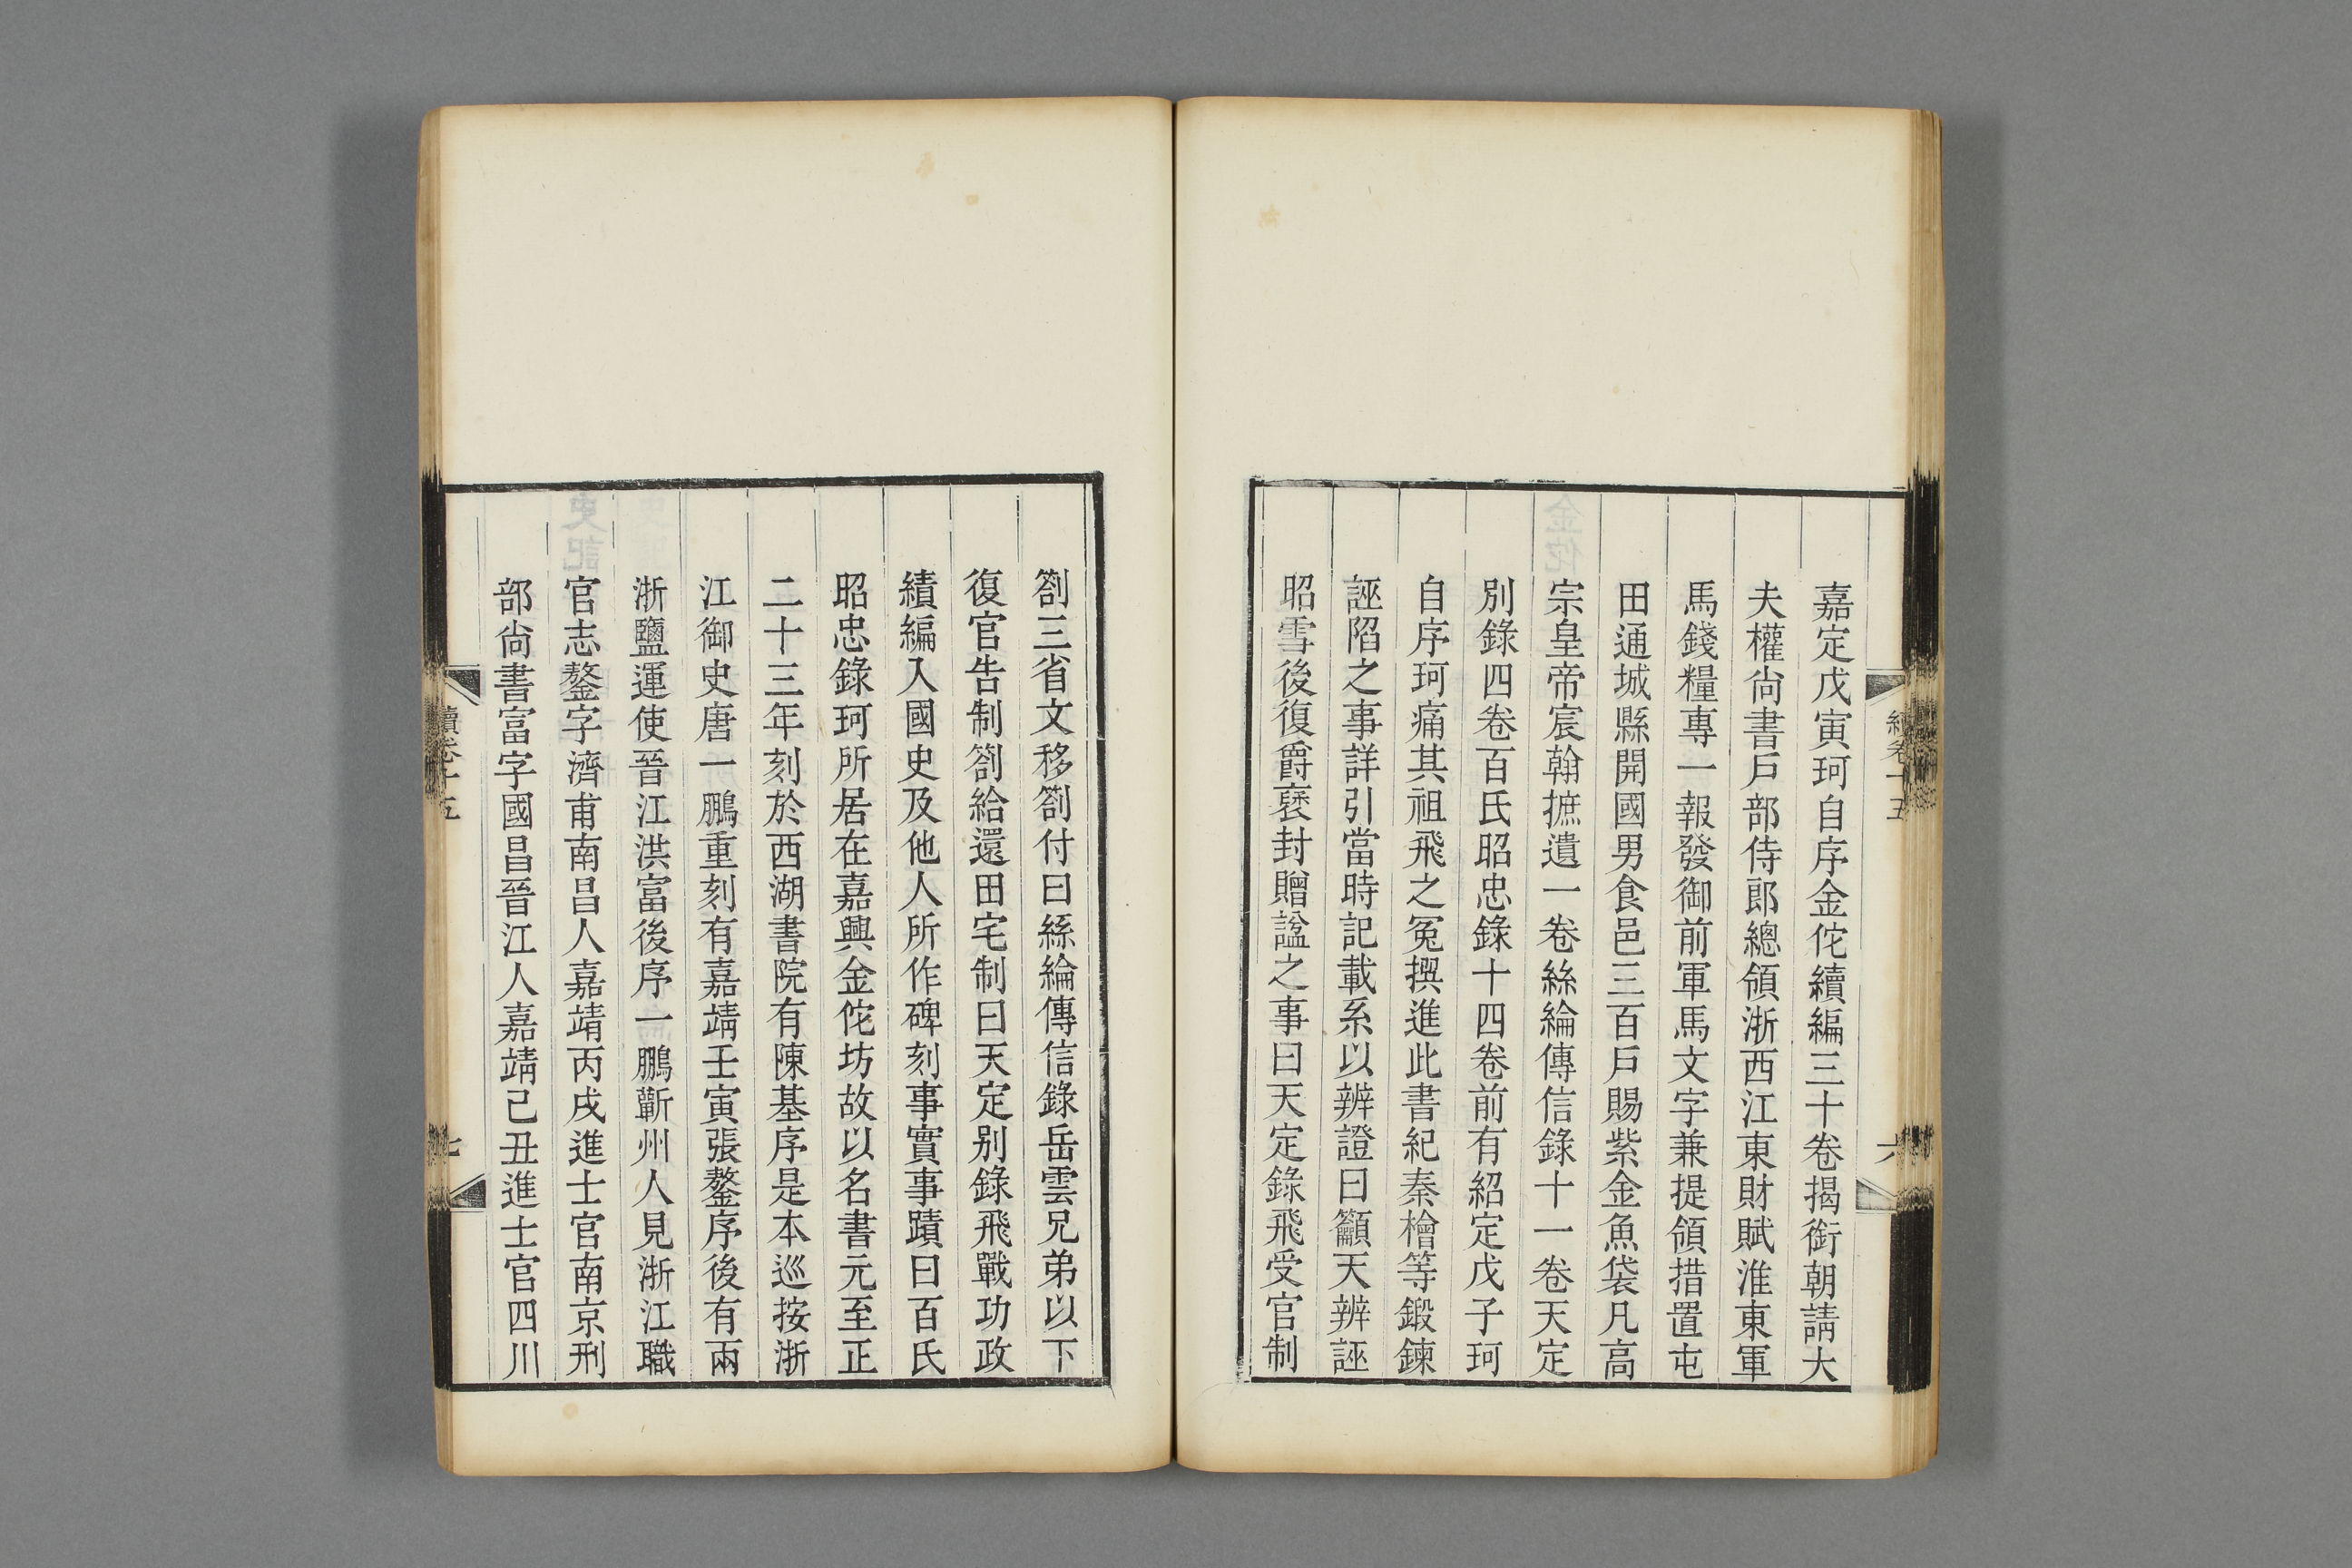 嘉定戊寅珂自序金佗續編三十卷揭銜朝請大
夫權尙書戶部侍郎總領浙西江東財賦淮東軍
馬錢糧專一報發御前軍馬文字兼提領措置屯
田通城縣開國男食邑三百戶賜紫金魚袋凡高
宗皇帝宸翰摭遺一卷絲綸傳信錄十一卷天定
別錄四卷百氏昭忠錄十四卷前有紹定戊子珂
自序珂痛其祖飛之冤撰進此書紀秦檜等鍛鍊
誣陷之事詳引當時記載系以辨證曰籲天辨誣
昭雪後復爵襃封贈諡之事曰天定錄飛受官制
續卷十五
六
劄三省文移劄付曰絲綸傳信錄岳雲兄弟以下
復官告制劄給還田宅制曰天定别錄飛戰功政
績編入國史及他人所作碑刻事實事蹟曰百氏
昭忠錄珂所居在嘉興金佗坊故以名書元至正
二十三年刻於西湖書院有陳基序是本巡按浙
江御史唐一鵬重刻有嘉靖壬寅張鏊序後有兩
浙鹽運使晉江洪富後序一鵬蘄州人見浙江職
官志鏊字濟甫南昌人嘉靖丙戌進士官南京刑
部尙書富字國昌晉江人嘉靖己丑進士官四川
續卷十五
七